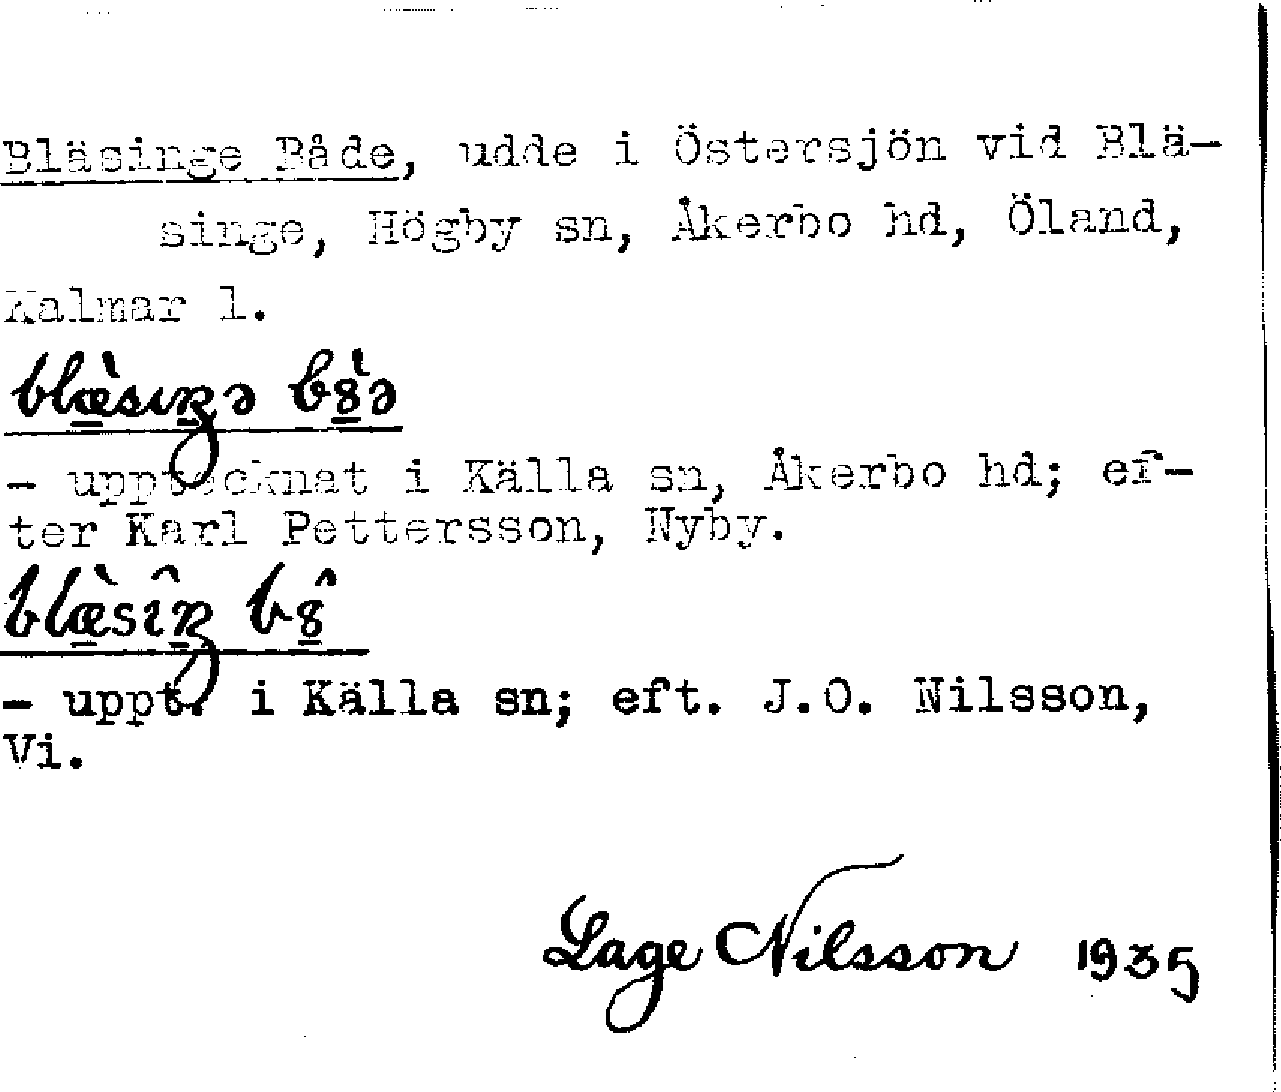 Bläsinge Både, udde i Östersjön vid Blä-
singe, Högby sn, Åkerbo hd, Öland,
Kalmar l.
blæ̱̀sıŋə b8̱̀ə
- upptecknat i Källa sn, Åkerbo hd; ef-
ter Karl Pettersson, Nyby.
blæ̱̀sıŋ̂ b8̱̂
- uppt. i Källa sn; eft. J.O. Nilsson,
Vi.
Lage Nilsson 1935